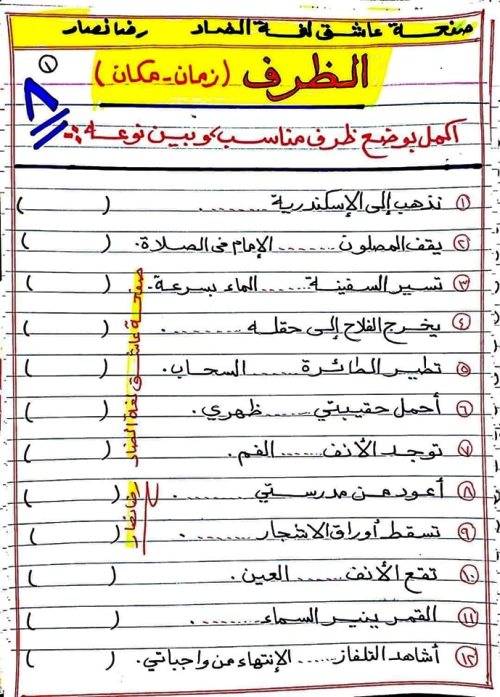 صفحة عاشق لغة الضاد رضا نصار
١
٨
الظرف (زمان - مكان)
اكمل بوضع ظرف مناسب، وبين نوعه :-
١ نذهب إلى الإسكندرية ........ ( )
٢ يقف المصلون ...... الإمام فى الصلاة. ( )
٣ تسير السفينة ........ الماء بسرعة. ( )
٤ يخرج الفلاح إلى حقله ........ . ( )
٥ تطير الطائرة ....... السحاب. ( )
٦ أحمل حقيبتي ...... ظهري. ( )
٧ توجد الأنف ...... الفم. ( )
٨ أعود من مدرستي ........ . ( )
٩ تسقط أوراق الاشجار ........ . ( )
١٠ تقع الأنف ...... العين. ( )
١١ القمر ينير السماء ........ . ( )
١٢ أشاهد التلفاز ..... الإنتهاء من واجباتي. ( )
صفحة عاشق لغة الضاد
رضا نصار